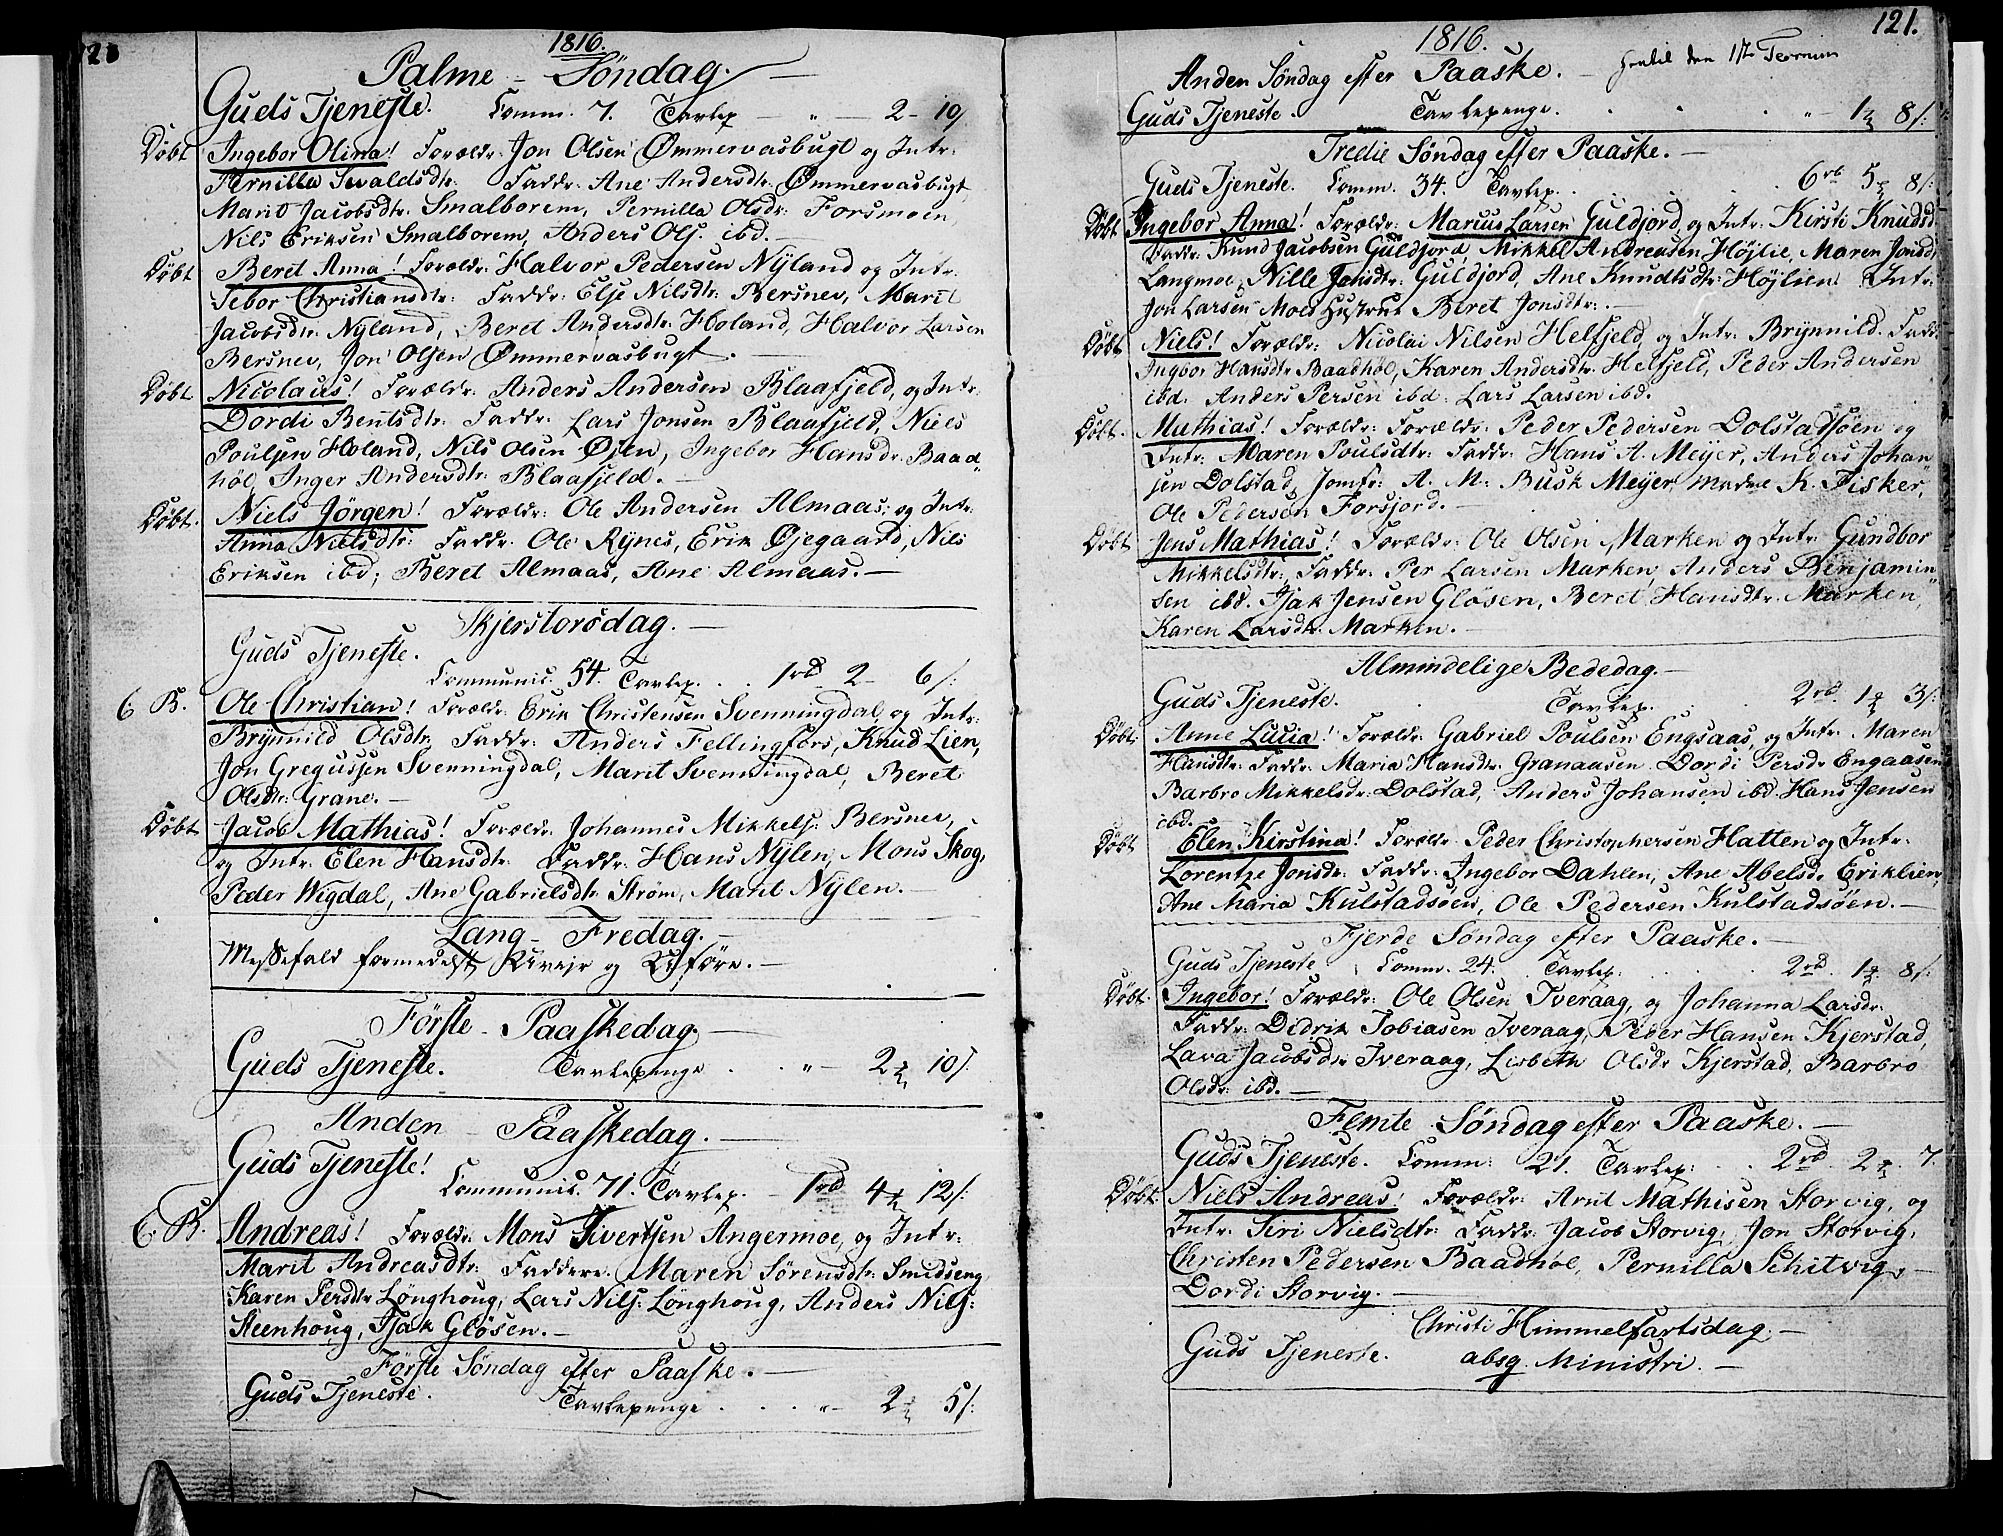 120
1816.
Palme - Søndag. -
Guds Tjeneste. Comm. 7. Tavlep - " - 2 - 10/
Døbt Ingebor Olina! Forældr: Jon Olsen Ømmervasbugt og Intr:
Pernilla Sivaldsdtr. Faddr: Ane Andersdtr. Ømmervasbugt,
Marit Jacobsdtr. Smalborem, Pernilla Olsdr: Forsmoen,
Nils Eriksen Smalborem, Anders Ols. ibd. -
Døbt Beret Anna! Forældr: Halvor Pedersen Nÿland og Intr:
Sebor Christiansdtr: Faddr: Else Nilsdtr. Bersnev, Marit
Jacobsdtr: Nÿland, Beret Andersdtr. Holand, Halvor Larsen
Bersnev, Jon Olsen Ømmervasbugt. -
Døbt Nicolaus! Forældr: Anders Andersen Blaafjeld, og Intr:
Dordi Bentsdtr. Faddr: Lars Jonsen Blaafjeld, Niels
Poulsen Holand, Nils Olsen Øien, Ingebor Hansdr: Baad"
høl Inger Andersdtr. Blaafjeld. -
Døbt. Niels Jörgen! Forældr: Ole Andersen Almaas; og Intr:
Anna Nielsdtr: Faddr. Ole Rÿnes, Erik Øjegaard, Nils
Eriksen ibd; Beret Almaas, Ane Almaas. -
Skjerstorsdag. -
Guds Tjeneste.
Communic. 54. Tavlep. . . 1rd 2 - 6/:
6. B. Ole Christian! Forældr: Erik Christensen Svenningdal, og Intr:
Brÿnnild Olsdtr. Faddr: Anders Fellingfors, Knud Lien,
Jon Gregussen Svenningdal, Marit Svenningdal, Beret
Olsdtr: Grane. -
Døbt Jacob Mathias! Forældr: Johannes Mikkels: Bersnev,
og Intr. Elen Hansdtr. Faddr: Hans Nÿlen, Mons Skog,
Peder Wigdal, Ane Gabrielsdtr Strøm, Marit Nÿlen. -
Lang - Fredag. -
Messefald formedelst Uveir og Uføre. -
Förste - Paaskedag. -
Guds Tjeneste. Tavlepenge . . . " - 2 10/:
Anden - Paaskedag. -
Guds Tjeneste!
Communic. 71. Tavlep. - 1rd 4 12/:
6. B. Andreas! Forældr: Mons Sivertsen Angermoe, og Intr:
Marit Andreasdtr: Faddere. Maren Sörensdtr: Smidseng
Karen Persdtr Lönghoug, Lars Nils: Lönghoug, Anders Nils:
Steenhoug, Isak Glösen. -
Förste Söndag efter Paaske. -
Guds Tjeneste. Tavlepenge . . . " - 2 5/:
121.
1816.
Anden Söndag efter Paaske. - den 1ste Termin
Guds Tjeneste. Tavlepenge. . . . " - 1 8/:
Tredie Söndag efter Paaske. -
Guds Tjeneste. Comm. 34. Tavlep. . . . 6rd 5 8/:
Døbt Ingebor Anna! Forældr: Marius Larsen Guldjord, og Intr: Kirsti Knudsd
Faddr: Knud Jacobsen Guldjord, Mikkel Andreasen Höjlie, Maren Jonsd
Langmoe, Nille Jonsdtr: Guldjord, Ane Knudtsdtr: Höjlien. Intr:
Jon Larsen Moes Hustrue Beret Jonsdtr. -
Døbt Niels! Forældr: Nicolai Nilsen Helfjeld, og Intr: Brÿnnild. Faddr:
Ingbor Hansdtr Baadhöl, Karen Andersdtr. Helfjeld, Peder Andersen
ibd. Anders Persen ibd. Lars Larsen ibd.
Døbt. Mathias! Forældr: Forældr: Peder Pedersen Dolstadsöen og
Intr: Maren Poulsdtr: Faddr: Hans A. Meyer, Anders Johan"
sen Dolstad, Jomfr: A. M. Busk Meyer, Madme K. Fisker,
Ole Pedersen Forsjord. -
Døbt Jens Mathias! Forældr: Ole Olsen Marken og Intr: Gundbor
Mikkelsdtr: Faddr: Per Larsen Marken, Anders Benjamin"
sen ibd. Isak Jensen Glösen, Beret Hansdtr. Marken,
Karen Larsdtr. Marken. -
Almindelige Bededag. -
Guds Tjeneste. Tavlep. . . 2rd. 1 3/:
Døbt. Anne Lucia! Forældr: Gabriel Poulsen Engsaas, og Intr: Maren
Hansdtr. Faddr: Maria Hansdtr. Granaasen. Dordi Persdr Engaasen
Barbro Mikkelsdr: Dolstad, Anders Johansen ibd. Hans Jensen
ibd. -
Døbt Elen Kirstina! Forældr: Peder Christophersen Hatten og Intr:
Lorentze Jonsdr: Faddr: Ingebor Dahlen, Ane Abelsdr Eriklien,
Ane Maria Kulstadsöen, Ole Pedersen Kulstadsöen. -
Fjerde Söndag efter Paaske. -
Guds Tjeneste Comm. 24. Tavlep. . . . 2rd. 1 8/:
Døbt. Ingebor! Forældr: Ole Olsen Tveraag, og Johanna Larsdr.
Faddr: Didrik Tobiasen Tveraag, Peder Hansen Kjerstad,
Lava Jacobsdr Tveraag, Lisbeth Olsdr Kjerstad, Barbro
Olsdr: ibd. -
Femte Söndag efter Paaske. -
Guds Tjeneste. Comm: 21. Tavlep: . . 2rd. 2 7.
Døbt. Niels Andreas! Forældr: Arnt Mathisen Storvig, og
Intr: Siri Nielsdtr: Faddr: Jacob Storvig, Jon Storvig,
Christen Pedersen Baadhöl, Pernilla Schitvig,
Dordi Storvig. -
Christi Himmelfartsdag. -
Guds Tjeneste. absq. Ministri. -